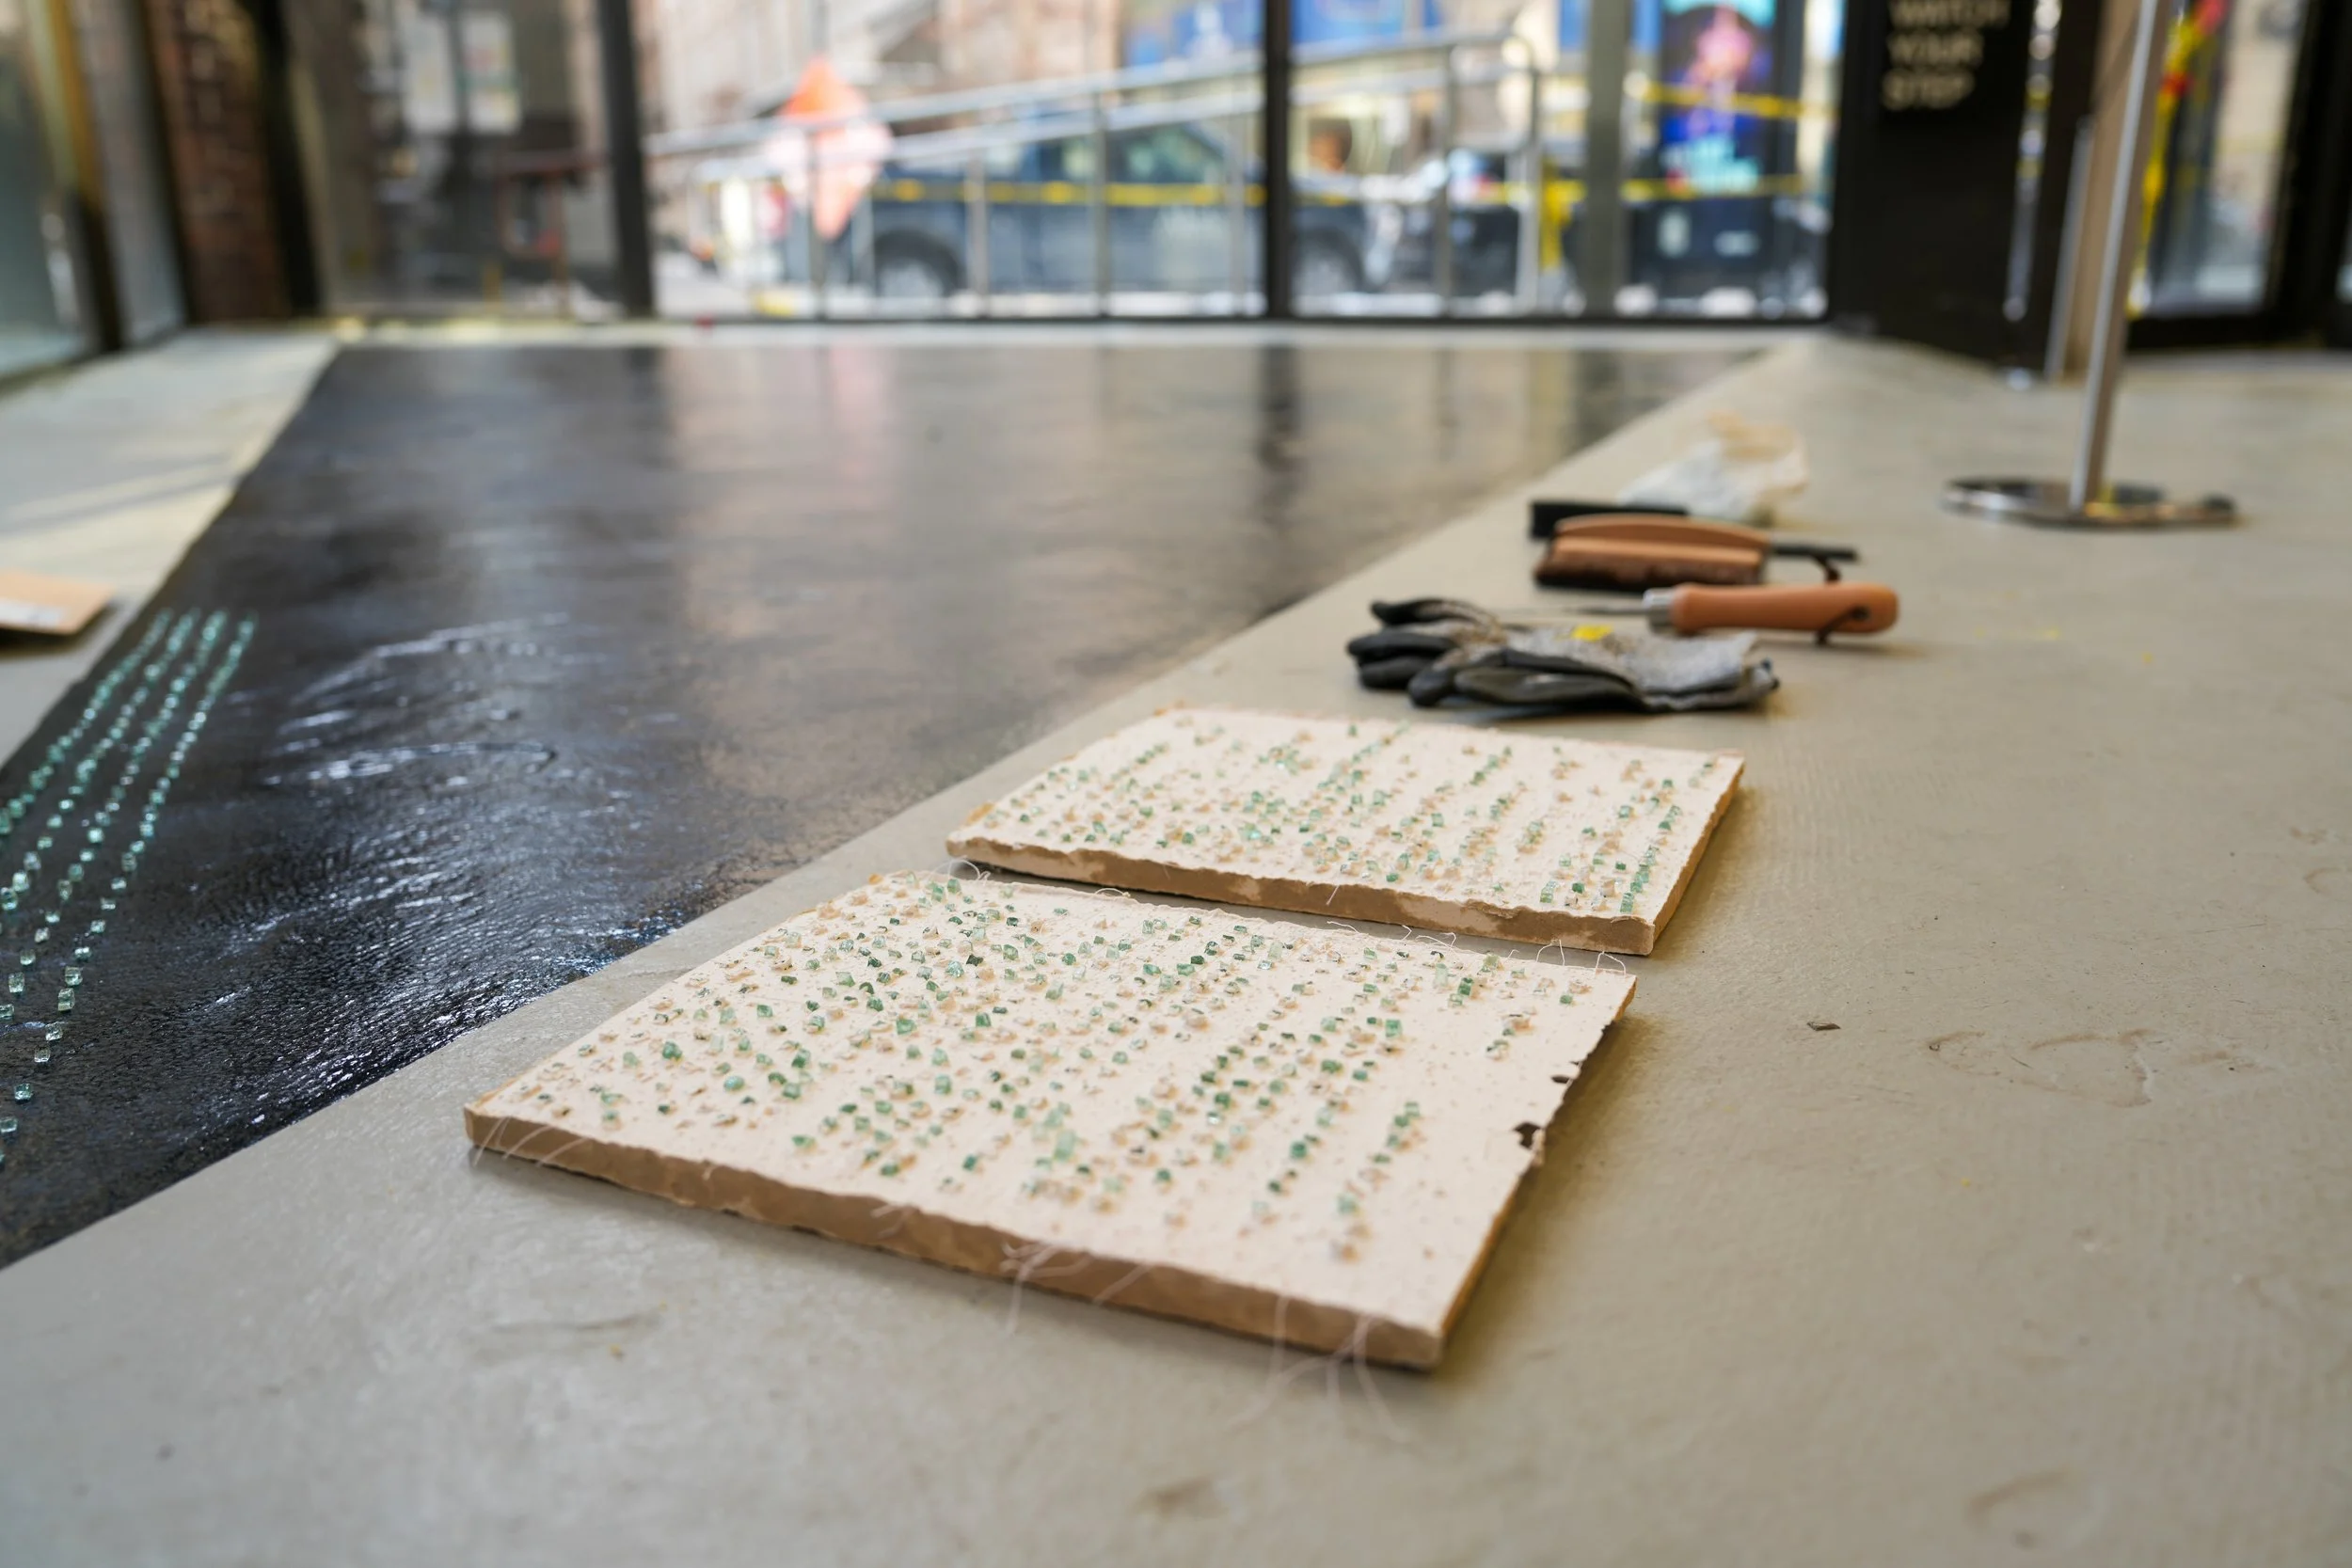 WATCH
YOUR
STEP